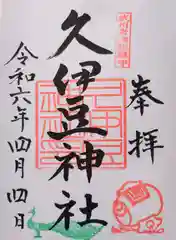 奉拝
久伊豆神社
令和六年四月四日